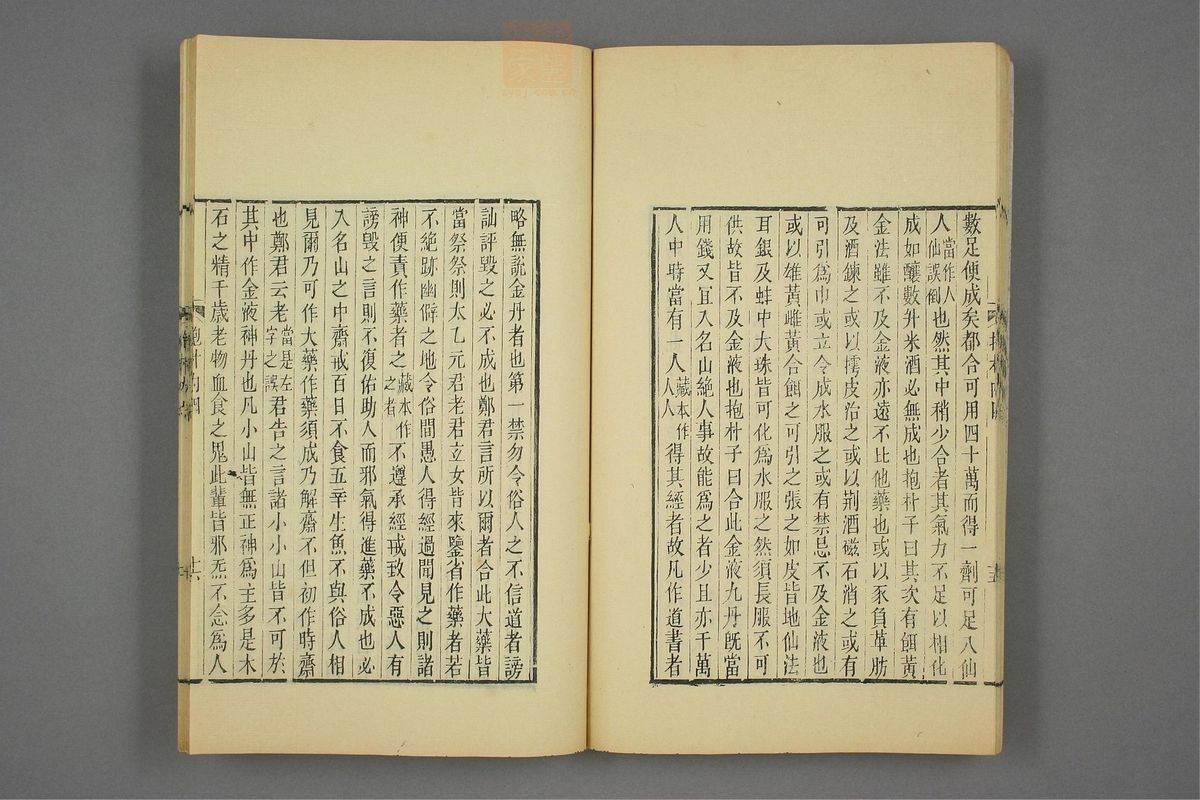 數足便成矣都合可用四十萬而得一劑可足八仙
人當作人仙誤倒也然其中稍少合者其氣力不足以相化
成如釀數升米酒必無成也抱朴子曰其次有餌黃
金法雖不及金液亦遠不比他藥也或以豕負革肪
及酒鍊之或以樗皮治之或以荆酒磁石消之或有
可引爲巾或立令成水服之或有禁忌不及金液也
或以雄黃雌黃合餌之可引之張之如皮皆地仙法
耳銀及蚌中大珠皆可化爲水服之然須長服不可
供故皆不及金液也抱朴子曰合此金液九丹旣當
用錢又宜入名山絶人事故能爲之者少且亦千萬
人中時當有一人藏本作人人得其經者故凡作道書者
略無說金丹者也第一禁勿令俗人之不信道者謗
訕評毀之必不成也鄭君言所以爾者合此大藥皆
當祭祭則太乙元君老君立女皆來鑒省作藥者若
不絶跡幽僻之地令俗閒愚人得經過聞見之則諸
神便責作藥者之藏本作之者不遵承經戒致令惡人有
謗毀之言則不復佑助人而邪氣得進藥不成也必
入名山之中齋戒百日不食五辛生魚不與俗人相
見爾乃可作大藥作藥須成乃解齋不但初作時齋
也鄭君云老當是左字之誤君告之言諸小小山皆不可於
其中作金液神丹也凡小山皆無正神爲主多是木
石之精千歳老物血食之鬼此輩皆邪炁不念爲人
十六